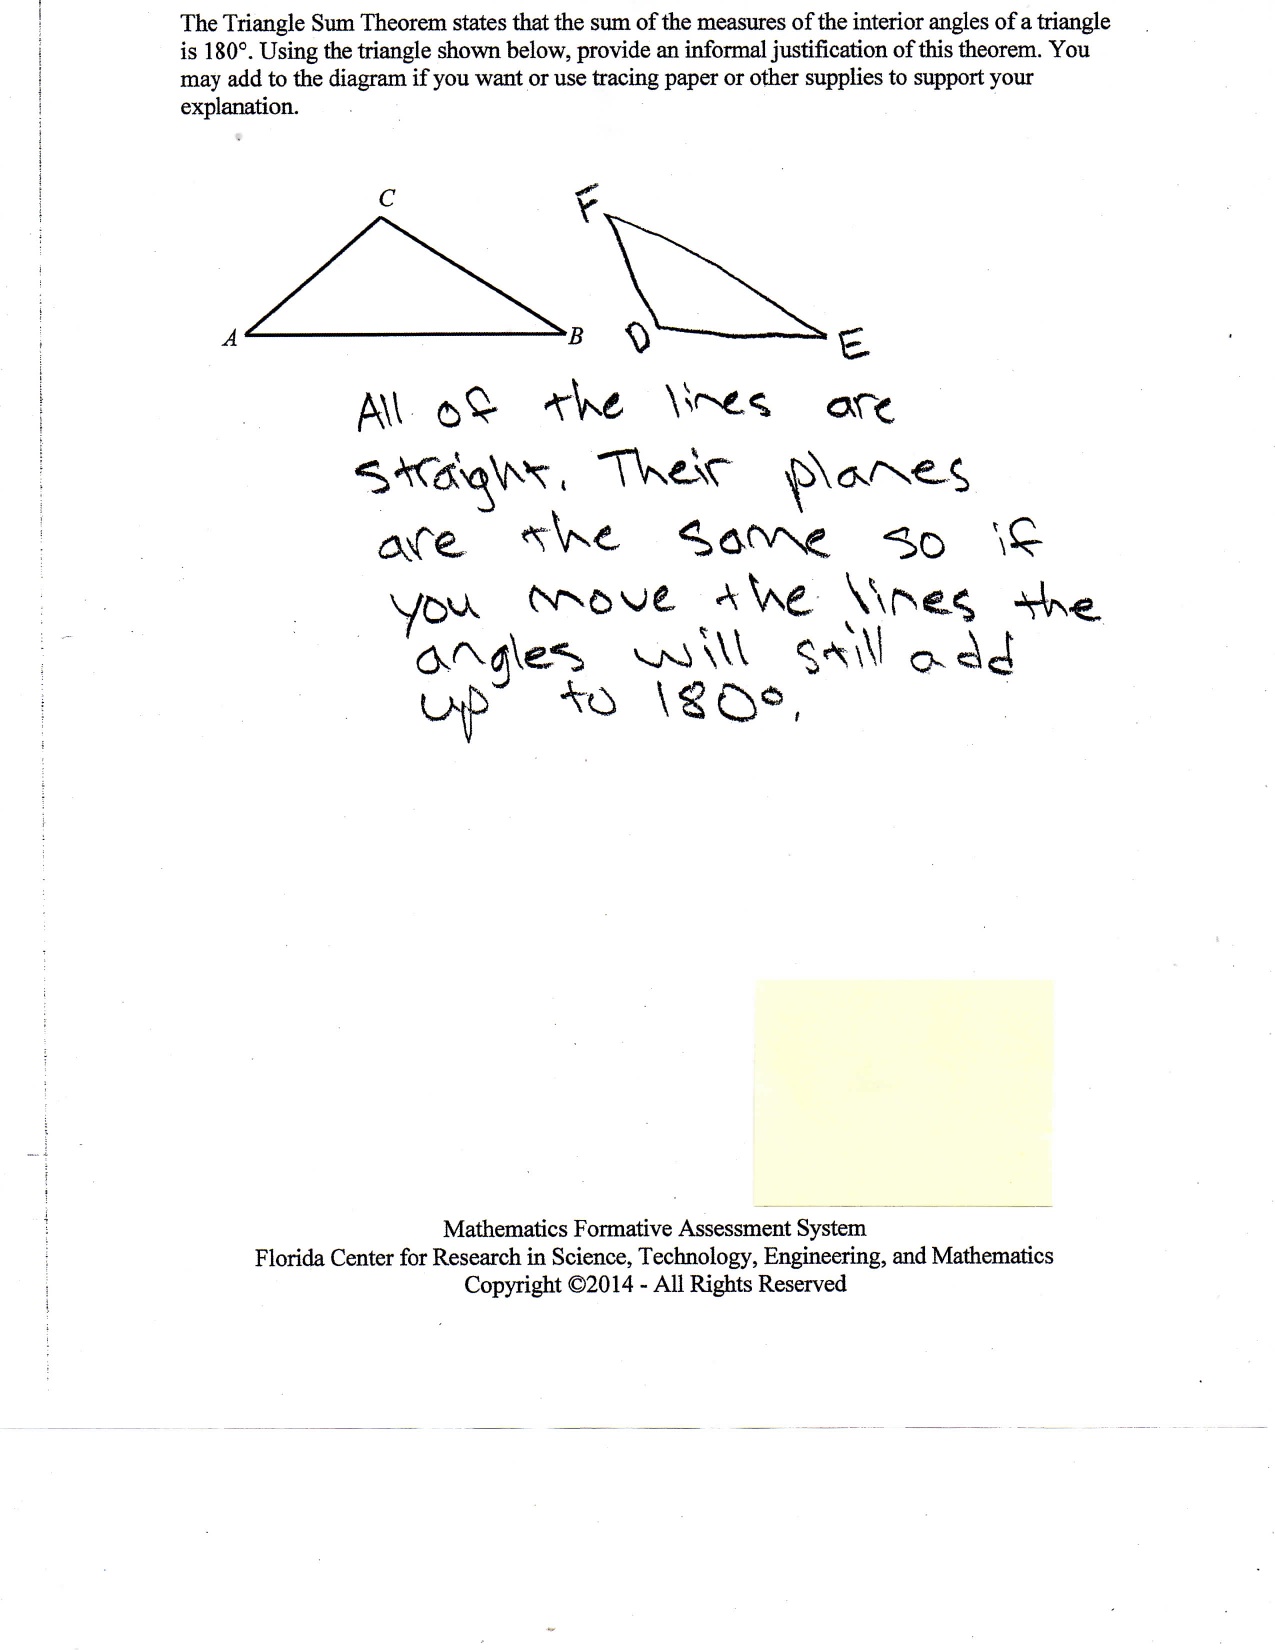 The Triangle Sum Theorem states that the sum of the measures of the interior angles of a triangle
is 180°. Using the triangle shown below, provide an informal justification of this theorem. You
may add to the diagram if you want or use tracing paper or other supplies to support your
explanation.
C
F
A
B
D
E
All of the lines are
straight. Their planes
are the same so if
you move the lines the
angles will still add
up to 180°.
Mathematics Formative Assessment System
Florida Center for Research in Science, Technology, Engineering, and Mathematics
Copyright ©2014 - All Rights Reserved